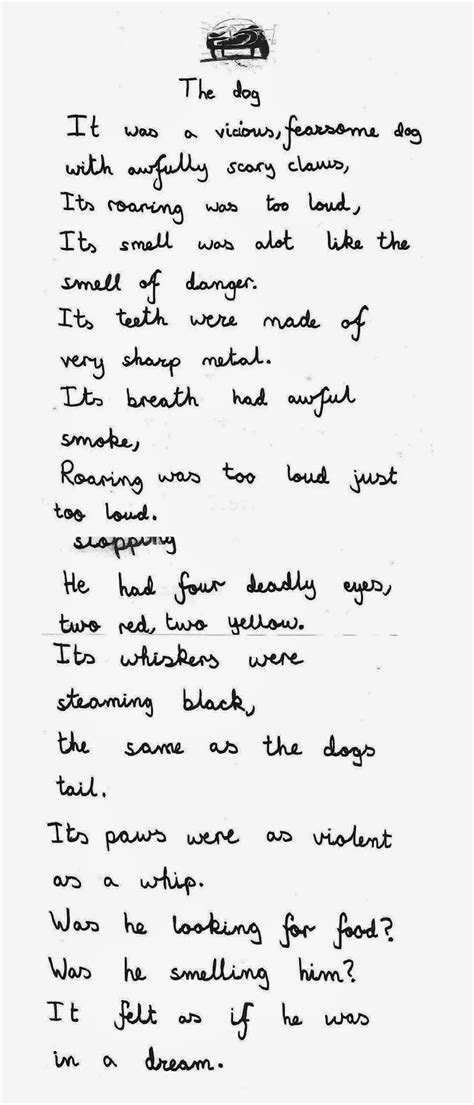 The dog
It was a vicious, fearsome dog
with awfully scary claws,
Its roaring was too loud,
Its smell was alot like the
smell of danger.
Its teeth were made of
very sharp metal.
Its breath had awful
smoke,
Roaring was too loud just
too loud.
He had four deadly eyes,
two red, two yellow.
Its whiskers were
steaming black,
the same as the dogs
tail.
Its paws were as violent
as a whip.
Was he looking for food?
Was he smelling him?
It felt as if he was
in a dream.